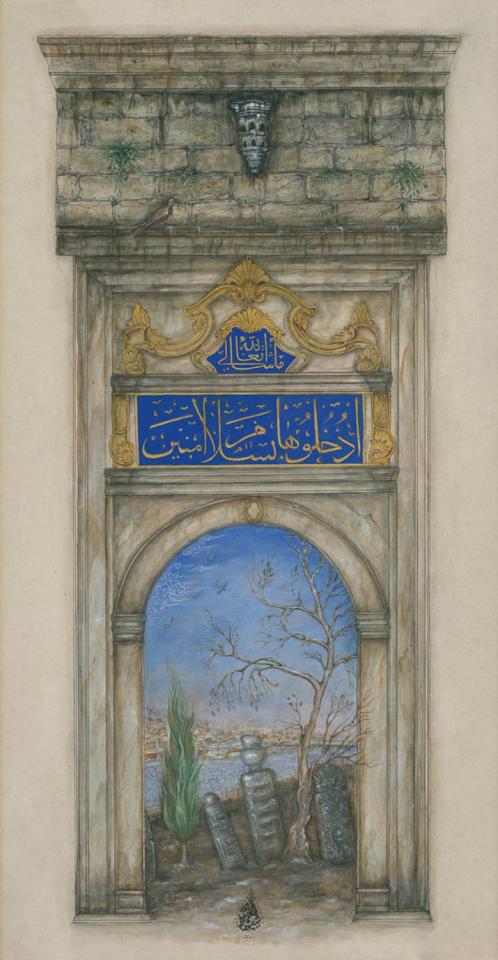 ما شاء الله تعالى
ادْخُلُوهَا بِسَلَامٍ اٰمِنِينَ